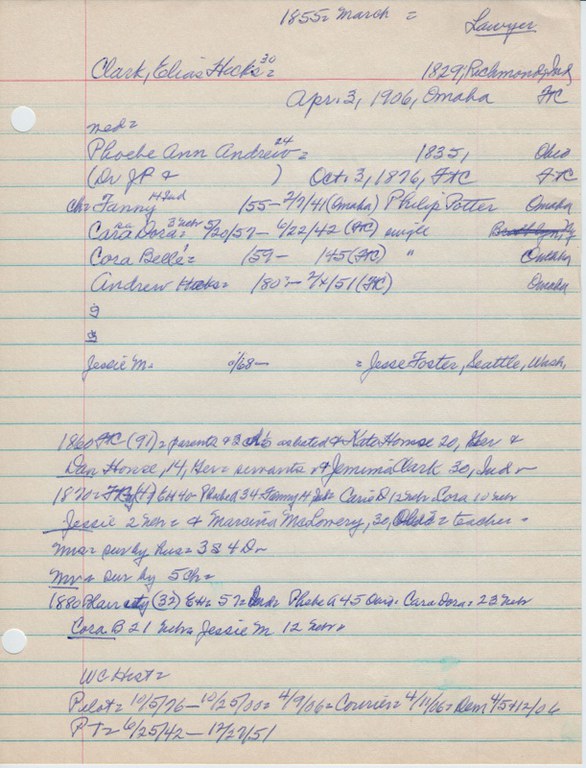 1855 = March =
Lawyer
Clark, Elias Hicks 30 = 1829, Richmond, Ind
Apr. 3, 1906, Omaha FC
med =
Phoebe Ann Andrew 24 = 1835, Ohio
(Dr J P & ) Oct. 3, 1876, FTC FTC
ch = Fanny 4 Ind /55 - 2/7/41 (Omaha) Philip Potter Omaha
Cara Dora = 3 Nebr 5/20/57 - 6/22/42 (FC) single Brooklyn, NY
Cora Belle = /59 - /45 (FC) " Omaha
Andrew Hicks = /80? - 2/4/51 (FC) Omaha
9
3
Jessie M. 0/68 - = Jesse Foster, Seattle, Wash.
1860 FC (91) = parents & 3 ch as listed & Kate House 20, Ger &
Dan House, 14, Ger = servants & Jemima Clark 30, Ind -
1870 = EH 40 Phebe A 34 Fanny 14 Ind Caris D 12 Nebr Cora 10 Nebr
Jessie 2 Nebr = & Marcina McLowery, 30, Ohio = teacher -
Mrs = sur by hus = 3 S 4 D -
Mr = sur by 5 ch =
1880 Blair city (33) EH = 51 Ind = Phebe A 45 Ohio. Cara Dora = 23 Nebr
Cora B 21 Nebr Jessie M 12 Nebr
W C Hist =
Pilot = 10/5/76 - 10/25/00 = 4/9/06 = Courier = 4/11/06 = Dem 4/5 + 12/06
P-T = 6/25/42 - 12/27/51